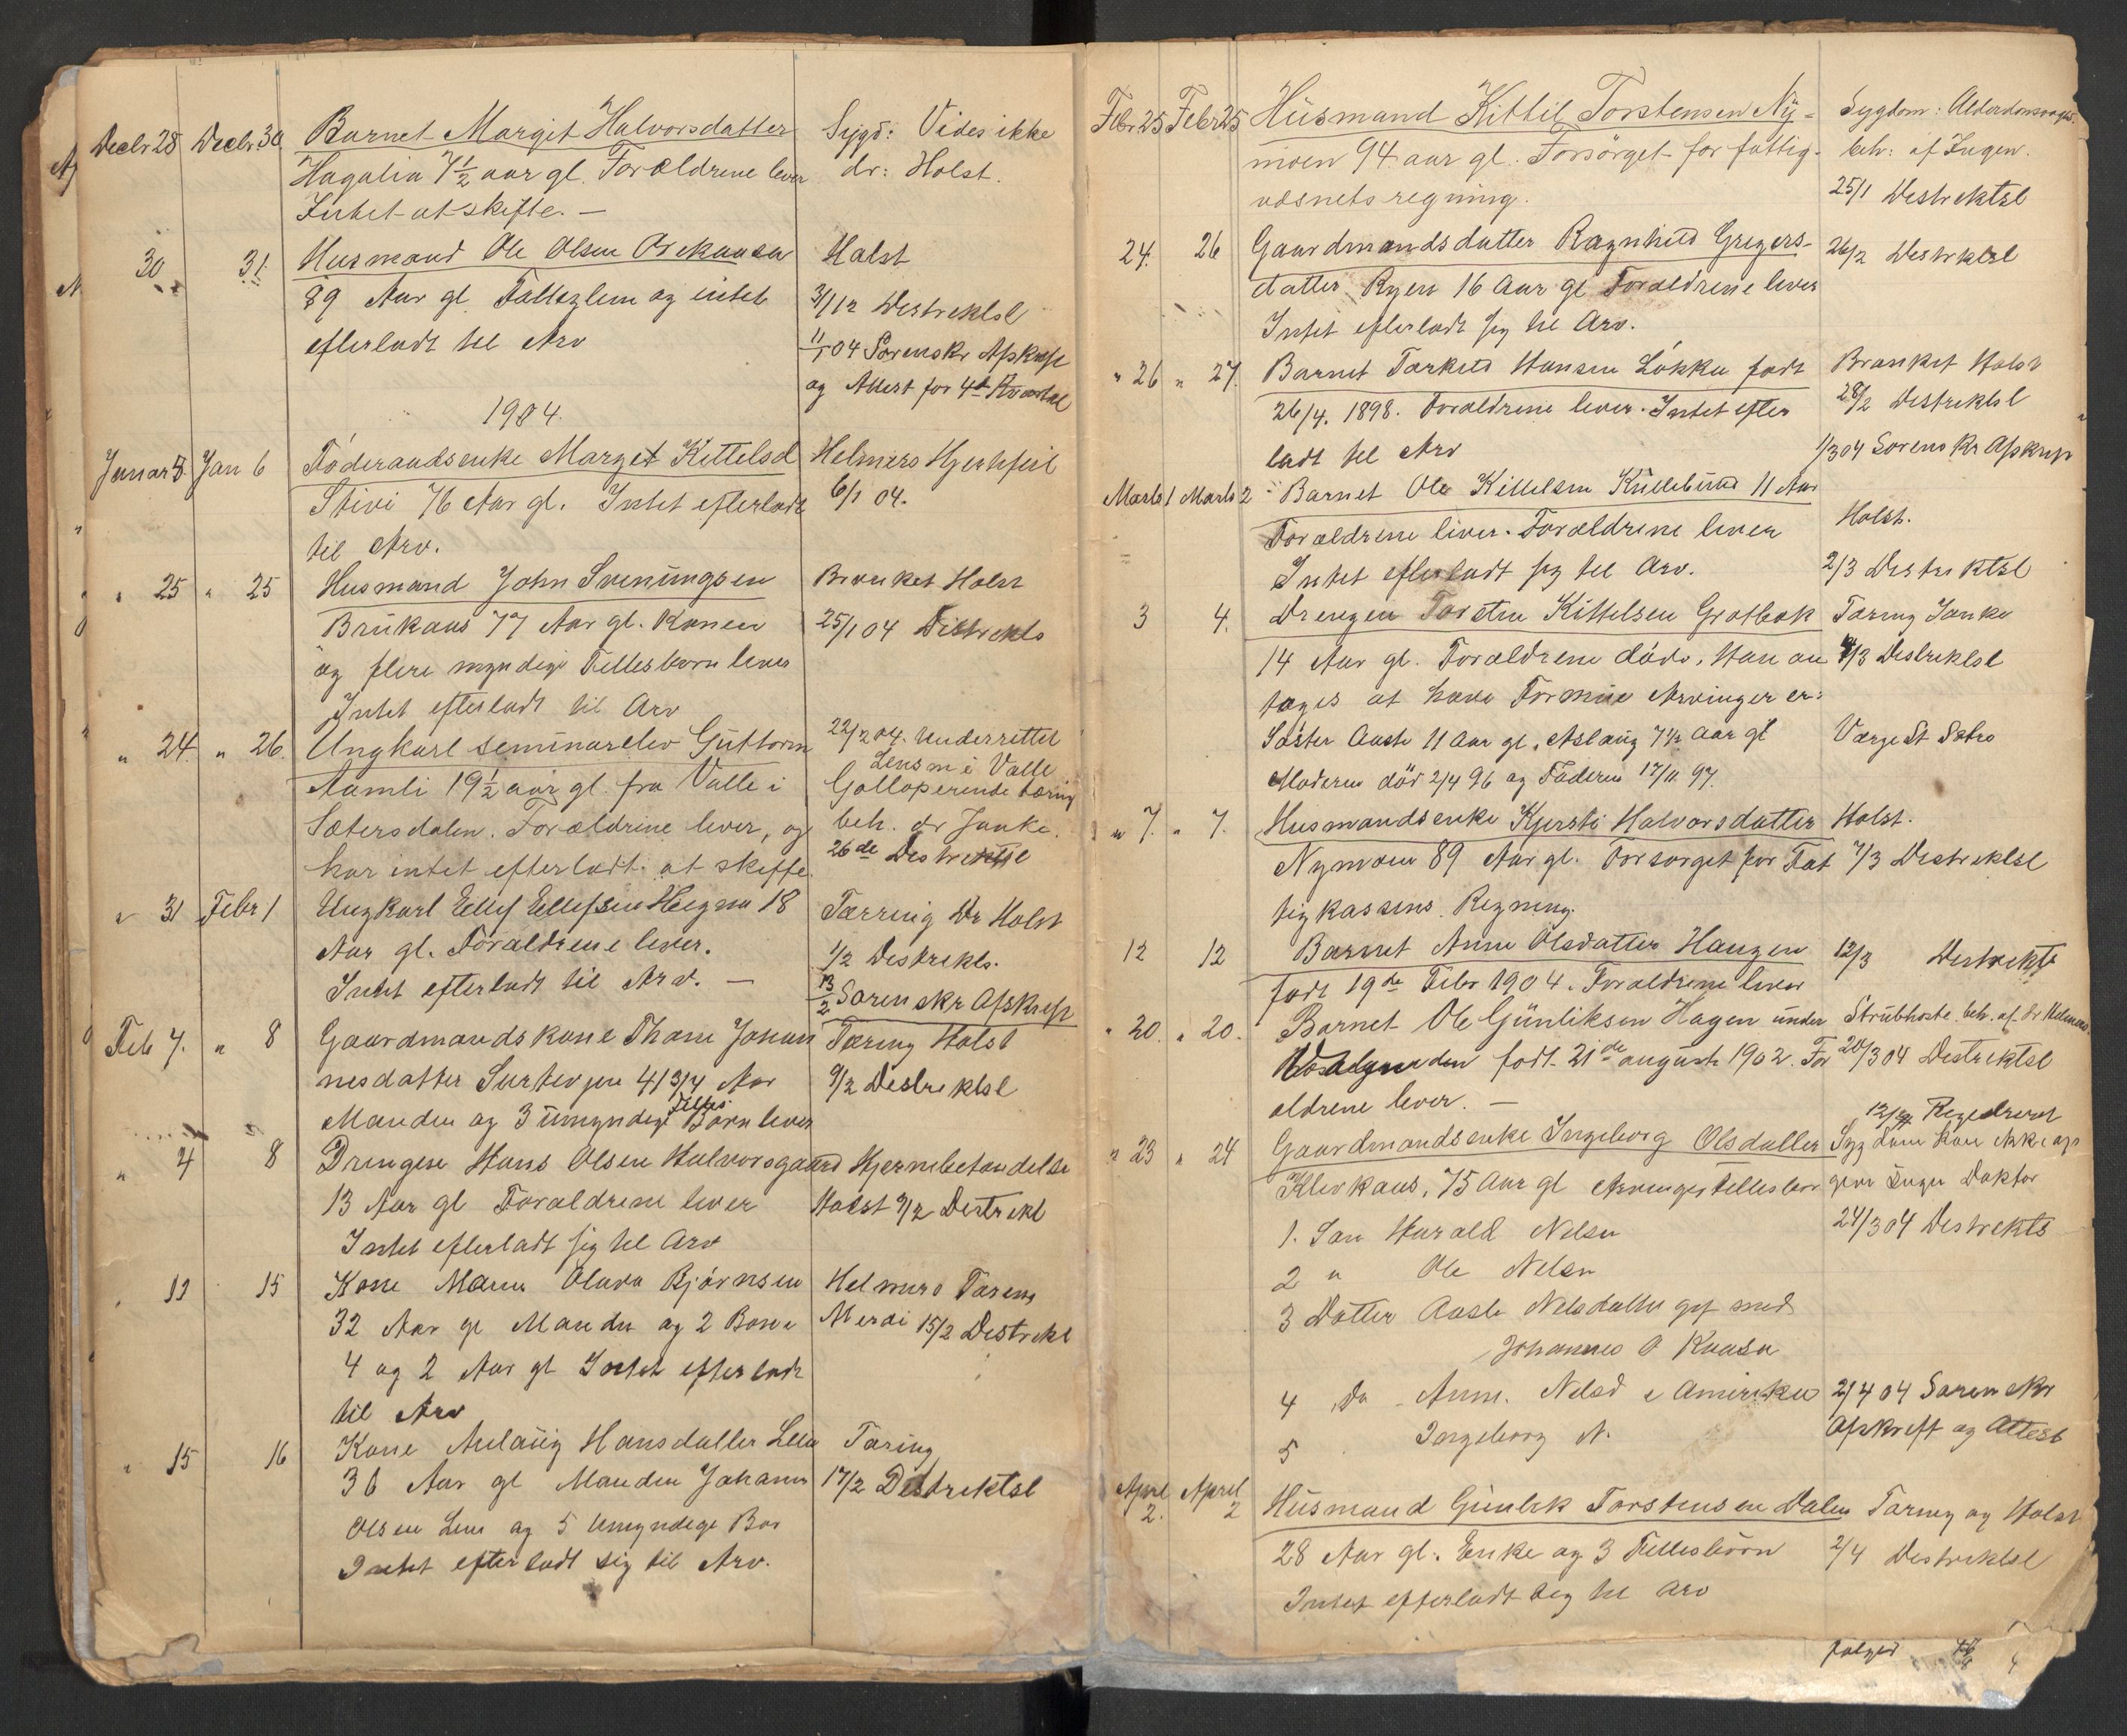 Decbr 28 Decbr. 30 Barnet Margit Halvorsdatter Sygd: Vides ikke
Hagalia 7 1/2 aar gl. Forældrene lever dr: Holst.
Intet at skifte. —
30 31. Husmand Ole Olsen Holst
89 Aar gl Fattiglem og intet 31/12 Destrektsl
efterladt til Arv 11/1 04 Sorenskr Afskrift
og Attest for 4de Kvartal
1904.
Januar 3. Jan 6 Föderaadsenke Marget Kittelsd Helmers Hjertefeil
Stivi 76 Aar gl. Intet efterladt 6/1 04.
til Arv.
" 25 " 25 Husmand John Sveinungsen Bronket Holst
Brükaas 77 Aar gl. Konen 25/1 04 Distrekts
og flere myndige Fellesbørn lever
Intet efterladt til Arv
" 24. " 26. Ungkarl seminarelev Guttorm 22/2 04. Underrettet
Lensm i Valle
Aamli 19 1/2 aar gl. fra Valle i Golloperende tæring
Sætersdalen. Forældrene lever, og beh. dr Janke.
har intet efterladt at skifte. 26de Destrektsl
" 31 Febr 1 Ungkarl Ellef Ellefsen Hegna 18 Tærring Dr Holst
Aar gl. Forældrene lever. 1/2 Destrekts.
Intet efterladt til Arv. — 13/2 Sorenskr Afskrift
Feb 7. " 8 Gaardmandskone Thone Johan Tæring Holst
nesdatter Surtevjen 41 3/4 Aar 9/2 Destrektsl
Manden og 3 ümyndige Felles Børn lever
" 4 8 Drengen Hans Olsen Halvorsgaard Hjernebetændelse
13 Aar gl Forældrene lever Holst 9/2 Destrekt
Intet efterladt sig til Arv
13 15 Kone Maren Olava Bjørnsen Helmers
32 Aar gl Manden og 2 Børn 15/2 Destrekt
4 og 2 Aar gl Intet efterladt
til Arv
" 15 16 Kone Aslaüg Hansdatter Lien Tæring
36 Aar gl Manden Johannes 17/2 Destrektsl
Olsen Lien og 5 Umyndige Bør
Intet efterladt sig til Arv.
Febr 25 Febr 25 Hüsmand Kittil Torstensen Ny- Sygdom: Alderdomssvagh.
moen 94 aar gl. Forsörget for fattig- beh: af Ingen.
væsnets regning. 25/1 Destrektsl
24. 26 Gaardmandsdatter Ragnhild Gregers- 26/2 Destrktsl
datter Ryen 16 Aar gl Forældrene lever
Intet efterladt sig til Arv.
" 26 " 27. Barnet Tarkild Hansen Løkka født Bronket Holst
26/4. 1898. Forældrene lever. Intet efter 28/2 Destrektsl
ladt til Arv 1/3 04 Sorenskr Afskrift
Marts 1 Marts 2 Barnet Ole Kittelsen Küllebünd 11 Aar
Forældrene liver. Forældrene lever Holst.
Intet efterladt sig til Arv. 2/3 Destriktsl
3 4. Drengen Torsten Kittelsen Grotbæk Tæring Janke
14 Aar gl. Forældrene døde. Han an 4/3 Destrektsl
tages at have Formüe Arvinger er:
Søster Aaste 11 Aar gl, Aslaüg 7 1/2 Aar gl Værge St Sætro
Moderen död 2/4 96 og Faderen 17/11 97.
" 7. " 7. Husmandsenke Kjersti Halvorsdatter Holst.
Nymoen 89 Aar gl. Forsorget for Fat 7/3 Destrektsl
tigkassens Regning.
12 12 Barnet Anne Olsdatter Haugen 12/3 Destrekts
født 19de Febr 1904. Forældrene lever
" 20. " 20. Barnet Ole Günliksen Hagen ünder Strübhoste. beh. af dr Helmers.
født 21de august 1902. For 20/3 04 Destrektsl
ældrene lever. —
Regestreret
" 23 " 24 Gaardmandsenke Ingeborg Olsdatter
Klevkaas, 75 Aar gl Arvinger Fellesbør Ingen Doktor
1. Søn Harald Nelsen 24/3 04 Destrekts
2 " Ole Nelsen
3 Datter Aaste Nelsdatter gift med
Johannes O Kaasa
4 Do Anne. Nelsd i Amerika 2/4 04 Sorenskr
5 Ingeborg N. Afskrift og Attest
April 2. April 2 Hüsmand Günlek Torstensen Dalen Tæring og Holst
28 Aar gl. Enke og 3 Fellesbörn 2/4 Destrektsl
Intet efterladt seg til Arv
følger